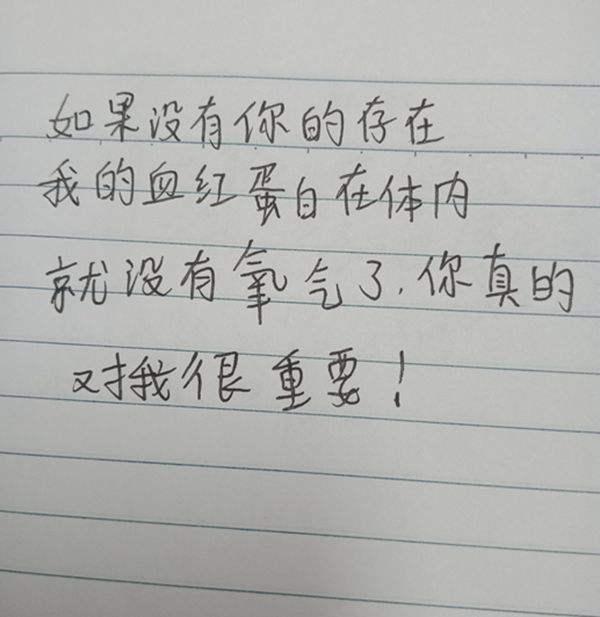 如果没有你的存在
我的血红蛋白在体内
就没有氧气了.你真的
对我很重要!